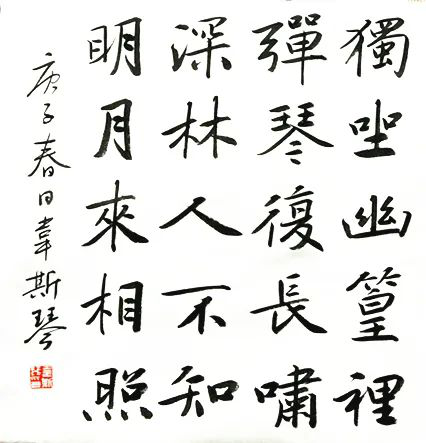 獨坐幽篁裡
彈琴復長嘯
深林人不知
明月來相照
庚子春日韋斯琴